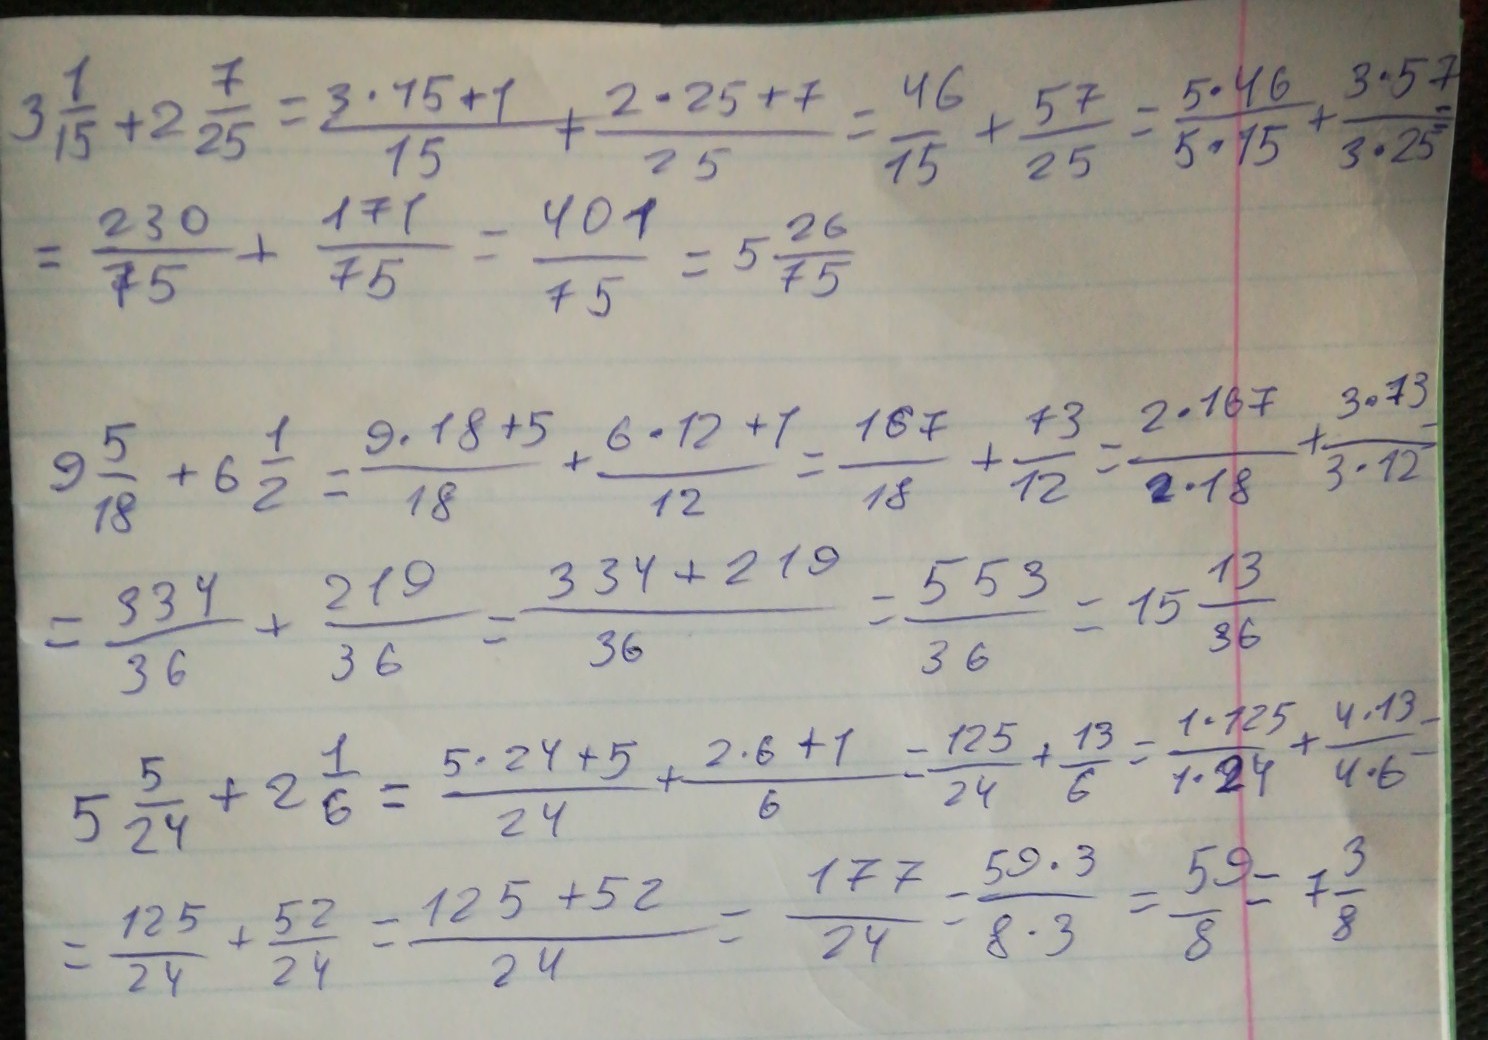 3 1/15 + 2 7/25 = (3·15+1)/15 + (2·25+7)/25 = 46/15 + 57/25 = (5·46)/(5·15) + (3·57)/(3·25) =
= 230/75 + 171/75 = 401/75 = 5 26/75
9 5/18 + 6 1/2 = (9·18+5)/18 + (6·12+1)/12 = 167/18 + 73/12 = (2·167)/(2·18) + (3·73)/(3·12) =
= 334/36 + 219/36 = (334+219)/36 = 553/36 = 15 13/36
5 5/24 + 2 1/6 = (5·24+5)/24 + (2·6+1)/6 = 125/24 + 13/6 = (1·125)/(1·24) + (4·13)/(4·6) =
= 125/24 + 52/24 = (125+52)/24 = 177/24 = (59·3)/(8·3) = 59/8 = 7 3/8